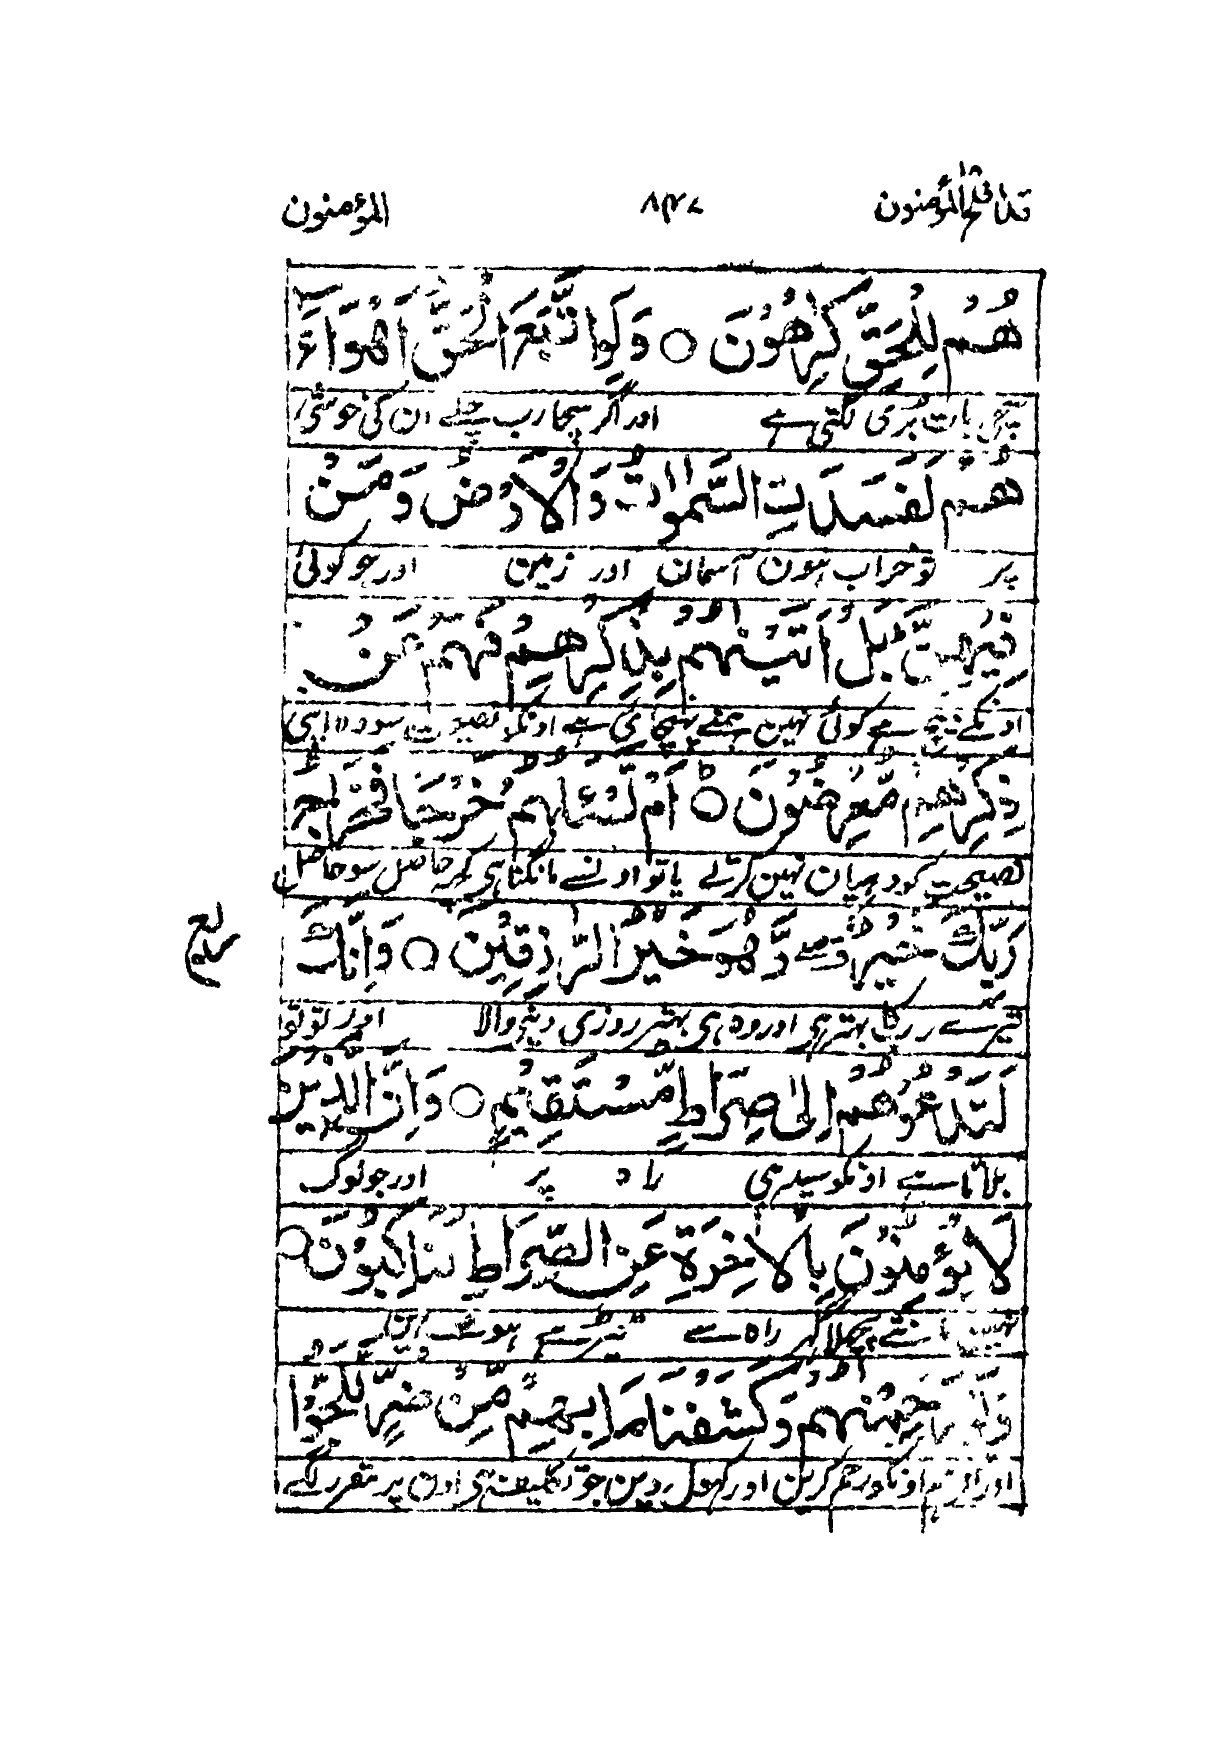 قد افلح المؤمنون ۱۸ ۸۴۷ المؤمنون
هُمْ لِلْحَقِّ كٰرِهُوْنَ ○ وَلَوِ اتَّبَعَ الْحَقُّ اَهْوَآءَ
سچی بات بُری لگتی ہے اور اگر سچا رب چلے ان کی خوشی
هُمْ لَفَسَدَتِ السَّمٰوٰتُ وَالْاَرْضُ وَمَنْ
پر تو خراب ہون آسمان اور زمین اور جو کوئی
فِيْهِنَّ ؕ بَلْ اَتَيْنٰهُمْ بِذِكْرِهِمْ فَهُمْ عَنْ
اونکے بیچ ہے کوئی نہین ہمنے پہنچائی ہے اونکو نصیحت سو وہ اپنی
ذِكْرِهِمْ مُّعْرِضُوْنَ ○ ؕ اَمْ تَسْـَٔلُهُمْ خَرْجًا فَخَرَاجُ
نصیحت کو دہیان نہین کرتے یا تو اونسے مانگتا ہی کچہ حاصل سو حاصل
رَبِّكَ خَيْرٌ وَّهُوَ خَيْرُ الرّٰزِقِيْنَ ○ وَاِنَّكَ
تیرے رب کا بہتر ہی اور وہ ہی بہتر روزی دینے والا اور تو تو
لَتَدْعُوْهُمْ اِلٰى صِرَاطٍ مُّسْتَقِيْمٍ ○ وَاِنَّ الَّذِيْنَ
بلاتا ہے اونکو سیدہی راہ پر اور جو لوگ
لَا يُؤْمِنُوْنَ بِالْاٰخِرَةِ عَنِ الصِّرَاطِ لَنٰكِبُوْنَ ○
نہین مانتے پچہلا گہر راہ سے ٹیڑہے ہوئے ہین
وَلَوْ رَحِمْنٰهُمْ وَكَشَفْنَا مَا بِهِمْ مِّنْ ضُرٍّ لَّلَجُّوْا
اور اگر ہم اونکو رحم کرین اور کہول دین جو تکلیف ہی اون پر مقرر لگے